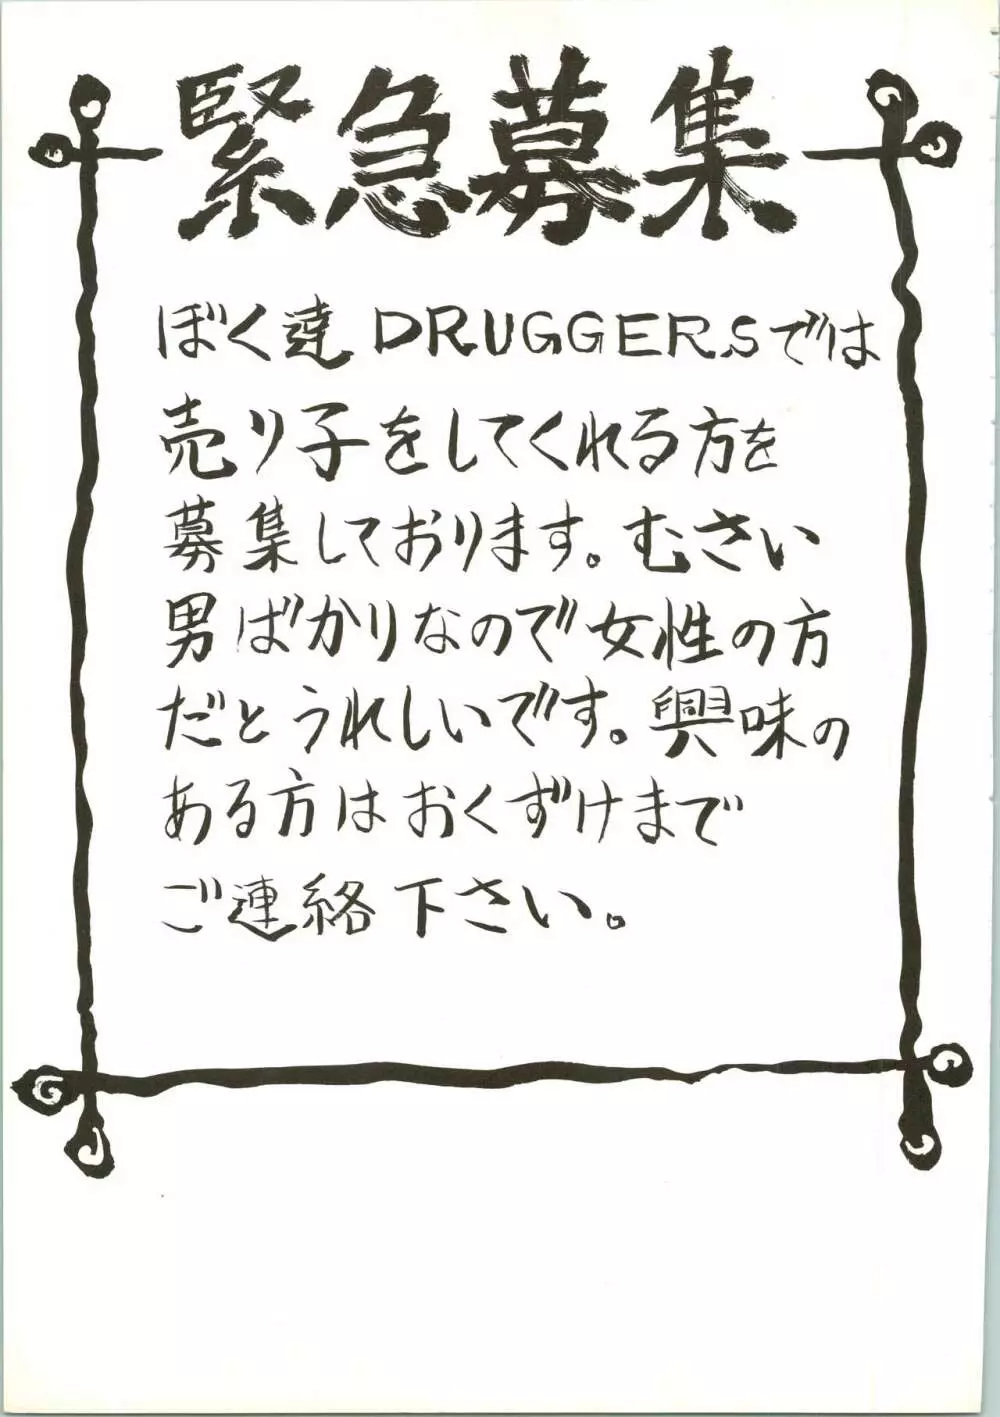 緊急募集
ぼく達 DRUGGERSでは
売り子をしてくれる方を
募集しております。むさい
男ばかりなので女性の方
だとうれしいです。興味の
ある方はおくずけまで
ご連絡下さい。